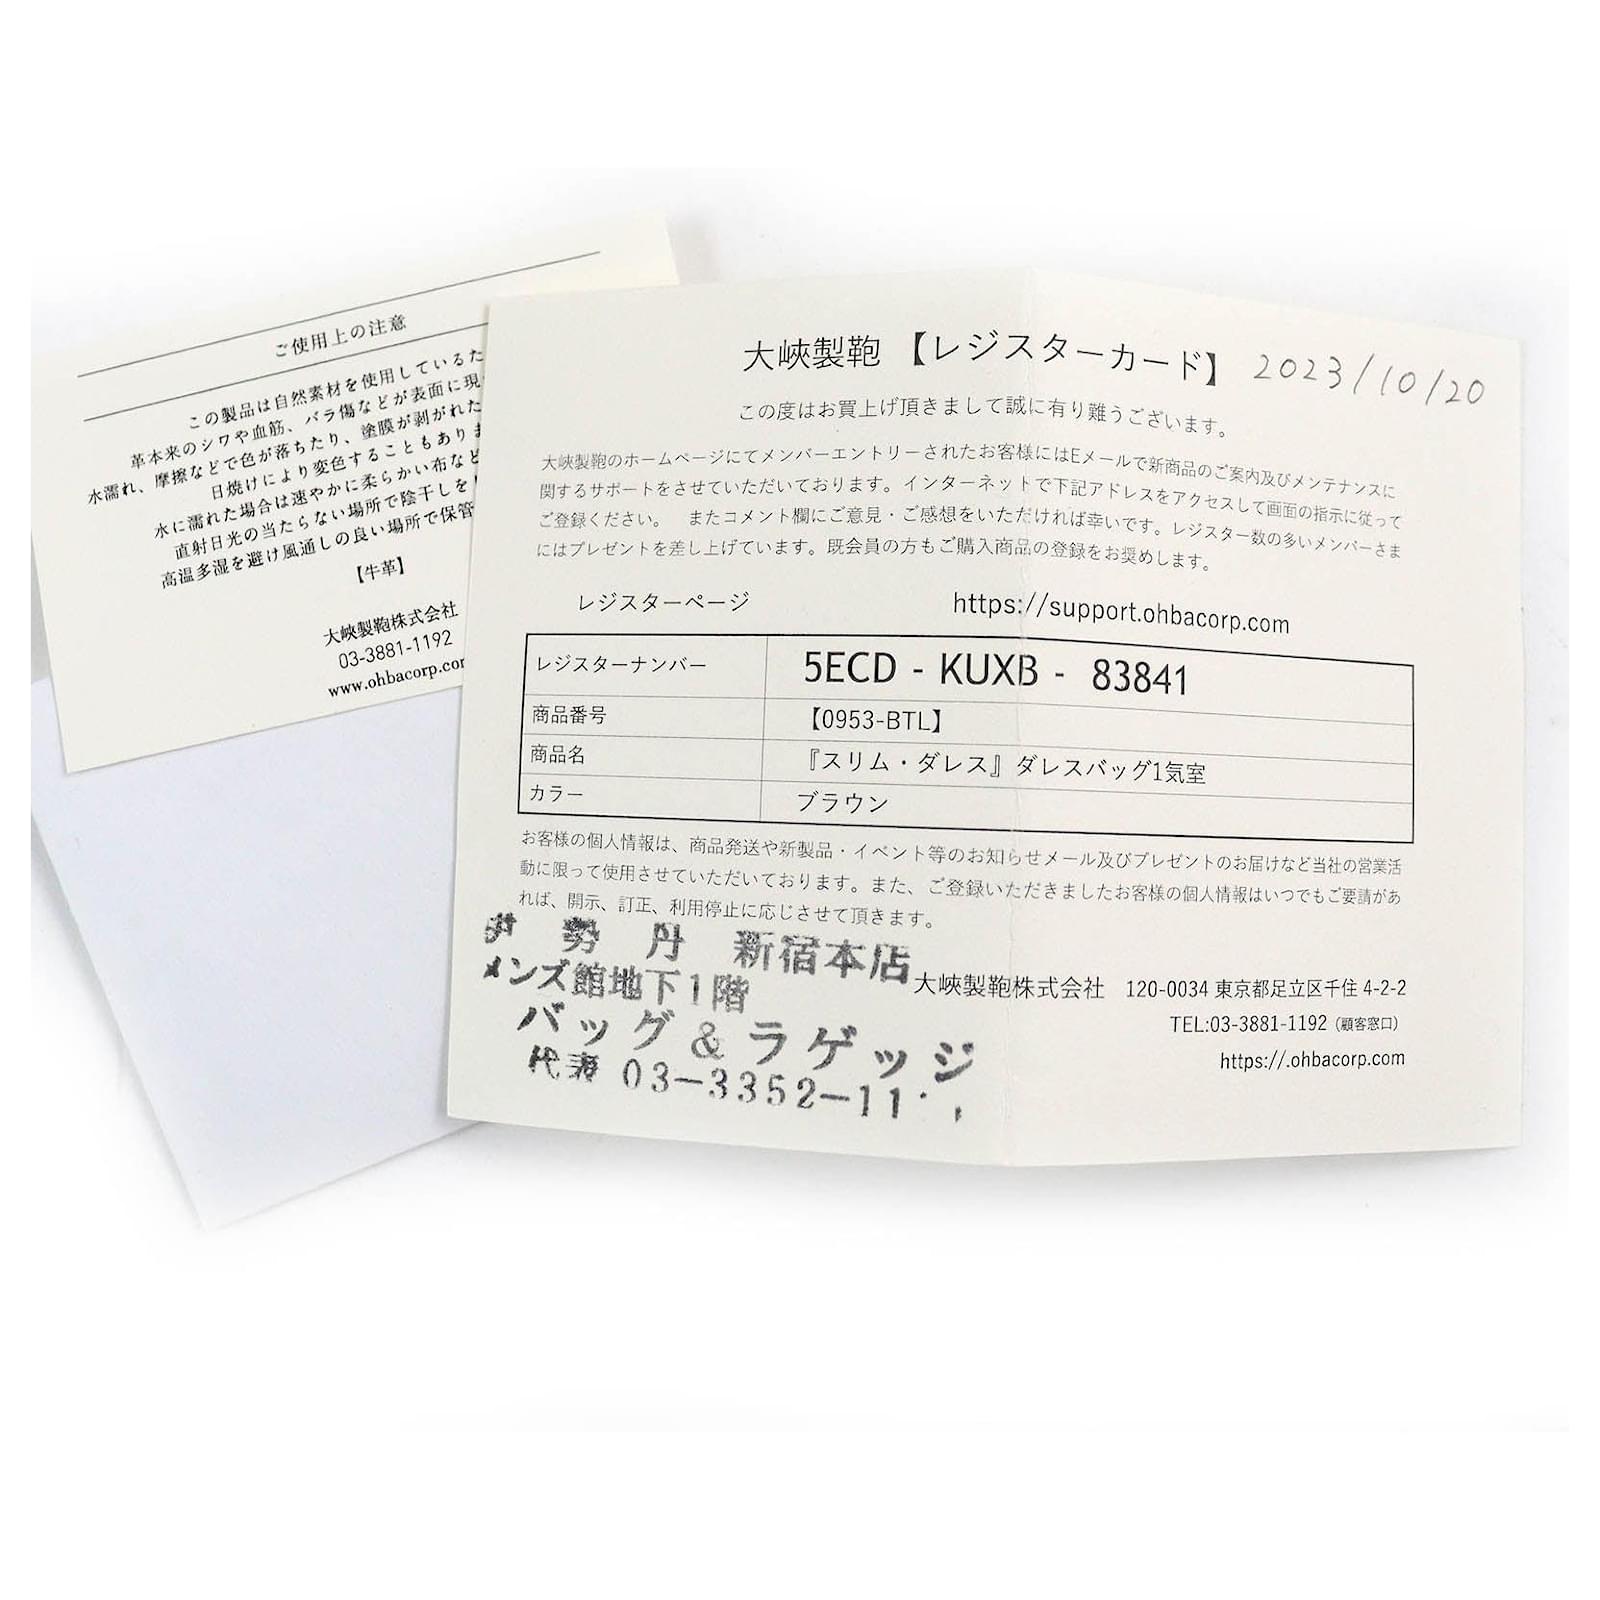 ご使用上の注意
この製品は自然素材を使用しているた
革本来のシワや血筋、バラ傷などが表面に現
水濡れ、摩擦などで色が落ちたり、塗膜が剥がれた
日焼けにより変色することもありま
水に濡れた場合は速やかに柔らかい布など
直射日光の当たらない場所で陰干しを
高温多湿を避け風通しの良い場所で保管
【牛革】
大峽製鞄株式会社
03-3881-1192
www.ohbacorp.com
大峽製鞄【レジスターカード】 2023/10/20
この度はお買上げ頂きまして誠に有り難うございます。
大峽製鞄のホームページにてメンバーエントリーされたお客様にはEメールで新商品のご案内及びメンテナンスに
関するサポートをさせていただいております。インターネットで下記アドレスをアクセスして画面の指示に従って
ご登録ください。 またコメント欄にご意見・ご感想をいただければ幸いです。レジスター数の多いメンバーさま
にはプレゼントを差し上げています。既会員の方もご購入商品の登録をお奨めします。
レジスターページ https://support.ohbacorp.com
レジスターナンバー 5ECD - KUXB - 83841
商品番号 【0953-BTL】
商品名 『スリム・ダレス』ダレスバッグ1気室
カラー ブラウン
お客様の個人情報は、商品発送や新製品・イベント等のお知らせメール及びプレゼントのお届けなど当社の営業活
動に限って使用させていただいております。また、ご登録いただきましたお客様の個人情報はいつでもご要請があ
れば、開示、訂正、利用停止に応じさせて頂きます。
伊勢丹 新宿本店
メンズ館地下1階
バッグ&ラゲッジ
代表 03-3352-11
大峽製鞄株式会社 120-0034 東京都足立区千住 4-2-2
TEL:03-3881-1192 (顧客窓口)
https://.ohbacorp.com